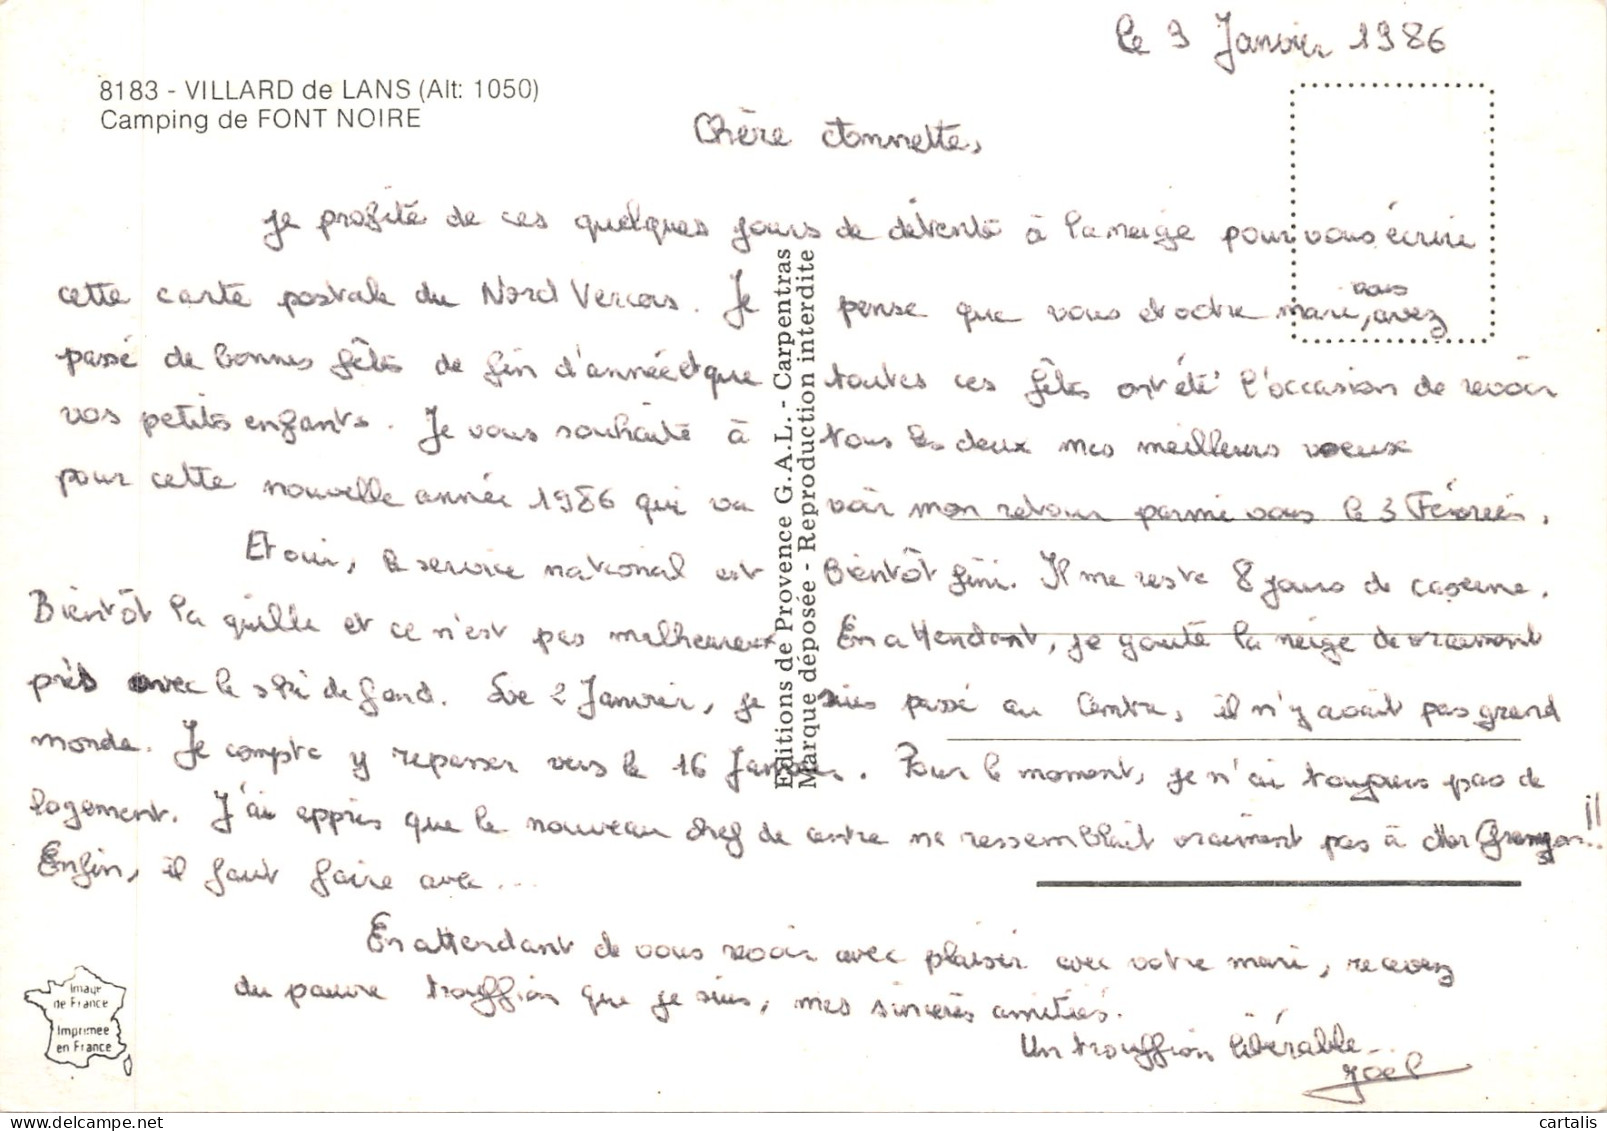 le 9 Janvier 1986
8183 - VILLARD de LANS (Alt: 1050)
Camping de FONT NOIRE
Chère Annette,
je profite de ces quelques jours de détente à la neige pour vous écrire
cette carte postale du Nord Vercors. Je pense que vous et votre mari, vous avez
passé de bonnes fêtes de fin d'année et que toutes ces fêtes ont été l'occasion de revoir
vos petits enfants. Je vous souhaite à tous les deux mes meilleurs voeux
pour cette nouvelle année 1986 qui va voir mon retour parmi vous le 3 Février.
Et oui, le service national est bientôt fini. Il me reste 8 jours de caserne.
Bientôt la quille et ce n'est pas malheureux. En attendant, je goute la neige de vraiment
près avec le ski de fond. Le 2 Janvier, je suis passé au Centre, il n'y avait pas grand
monde. Je compte y repasser vers le 16 Janvier. Pour le moment, je n'ai toujours pas de
logement. J'ai appris que le nouveau chef de centre ne ressemblait vraiment pas à Mr !!
Enfin, il faut faire avec...
En attendant de vous revoir avec plaisir avec votre mari, recevez
du pauvre trouffion que je suis, mes sincères amitiés.
Un trouffion libérable...
Joël
Editions de Provence G.A.L. - Carpentras
Marque déposée - Reproduction interdite
Image
de France
Imprimée
en France
cartalis